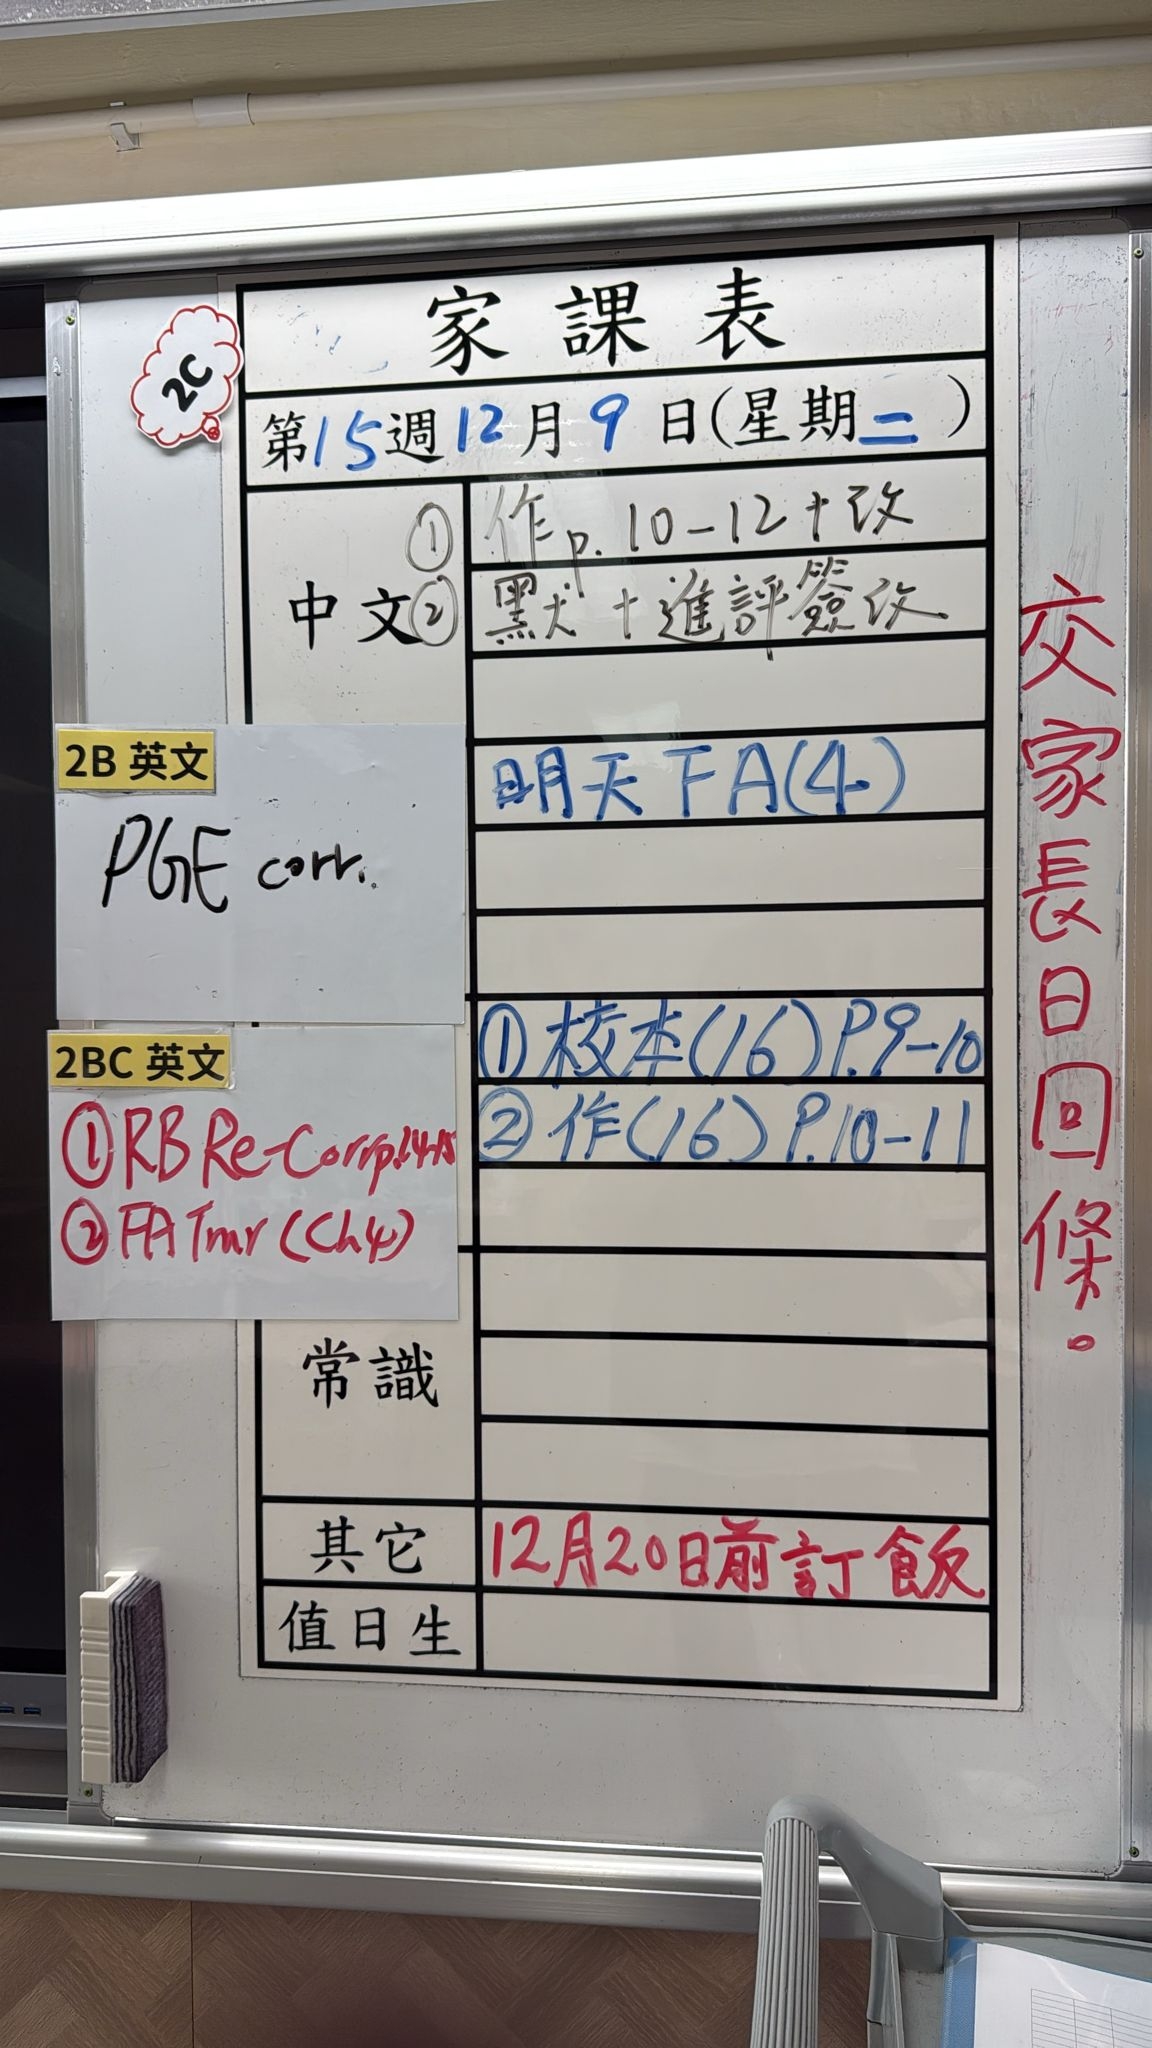 家課表
2C
第15週12月9日(星期二)
中文
① 作p.10-12+改
② 默+進評簽改
2B 英文
PGE corr.
明天FA(4)
2BC 英文
① RB Re-Corr p.14-15
② FA Tmr (Ch4)
① 校本(16)P.9-10
② 作(16)P.10-11
常識
其它
12月20日前訂飯
值日生
交家長日回條。